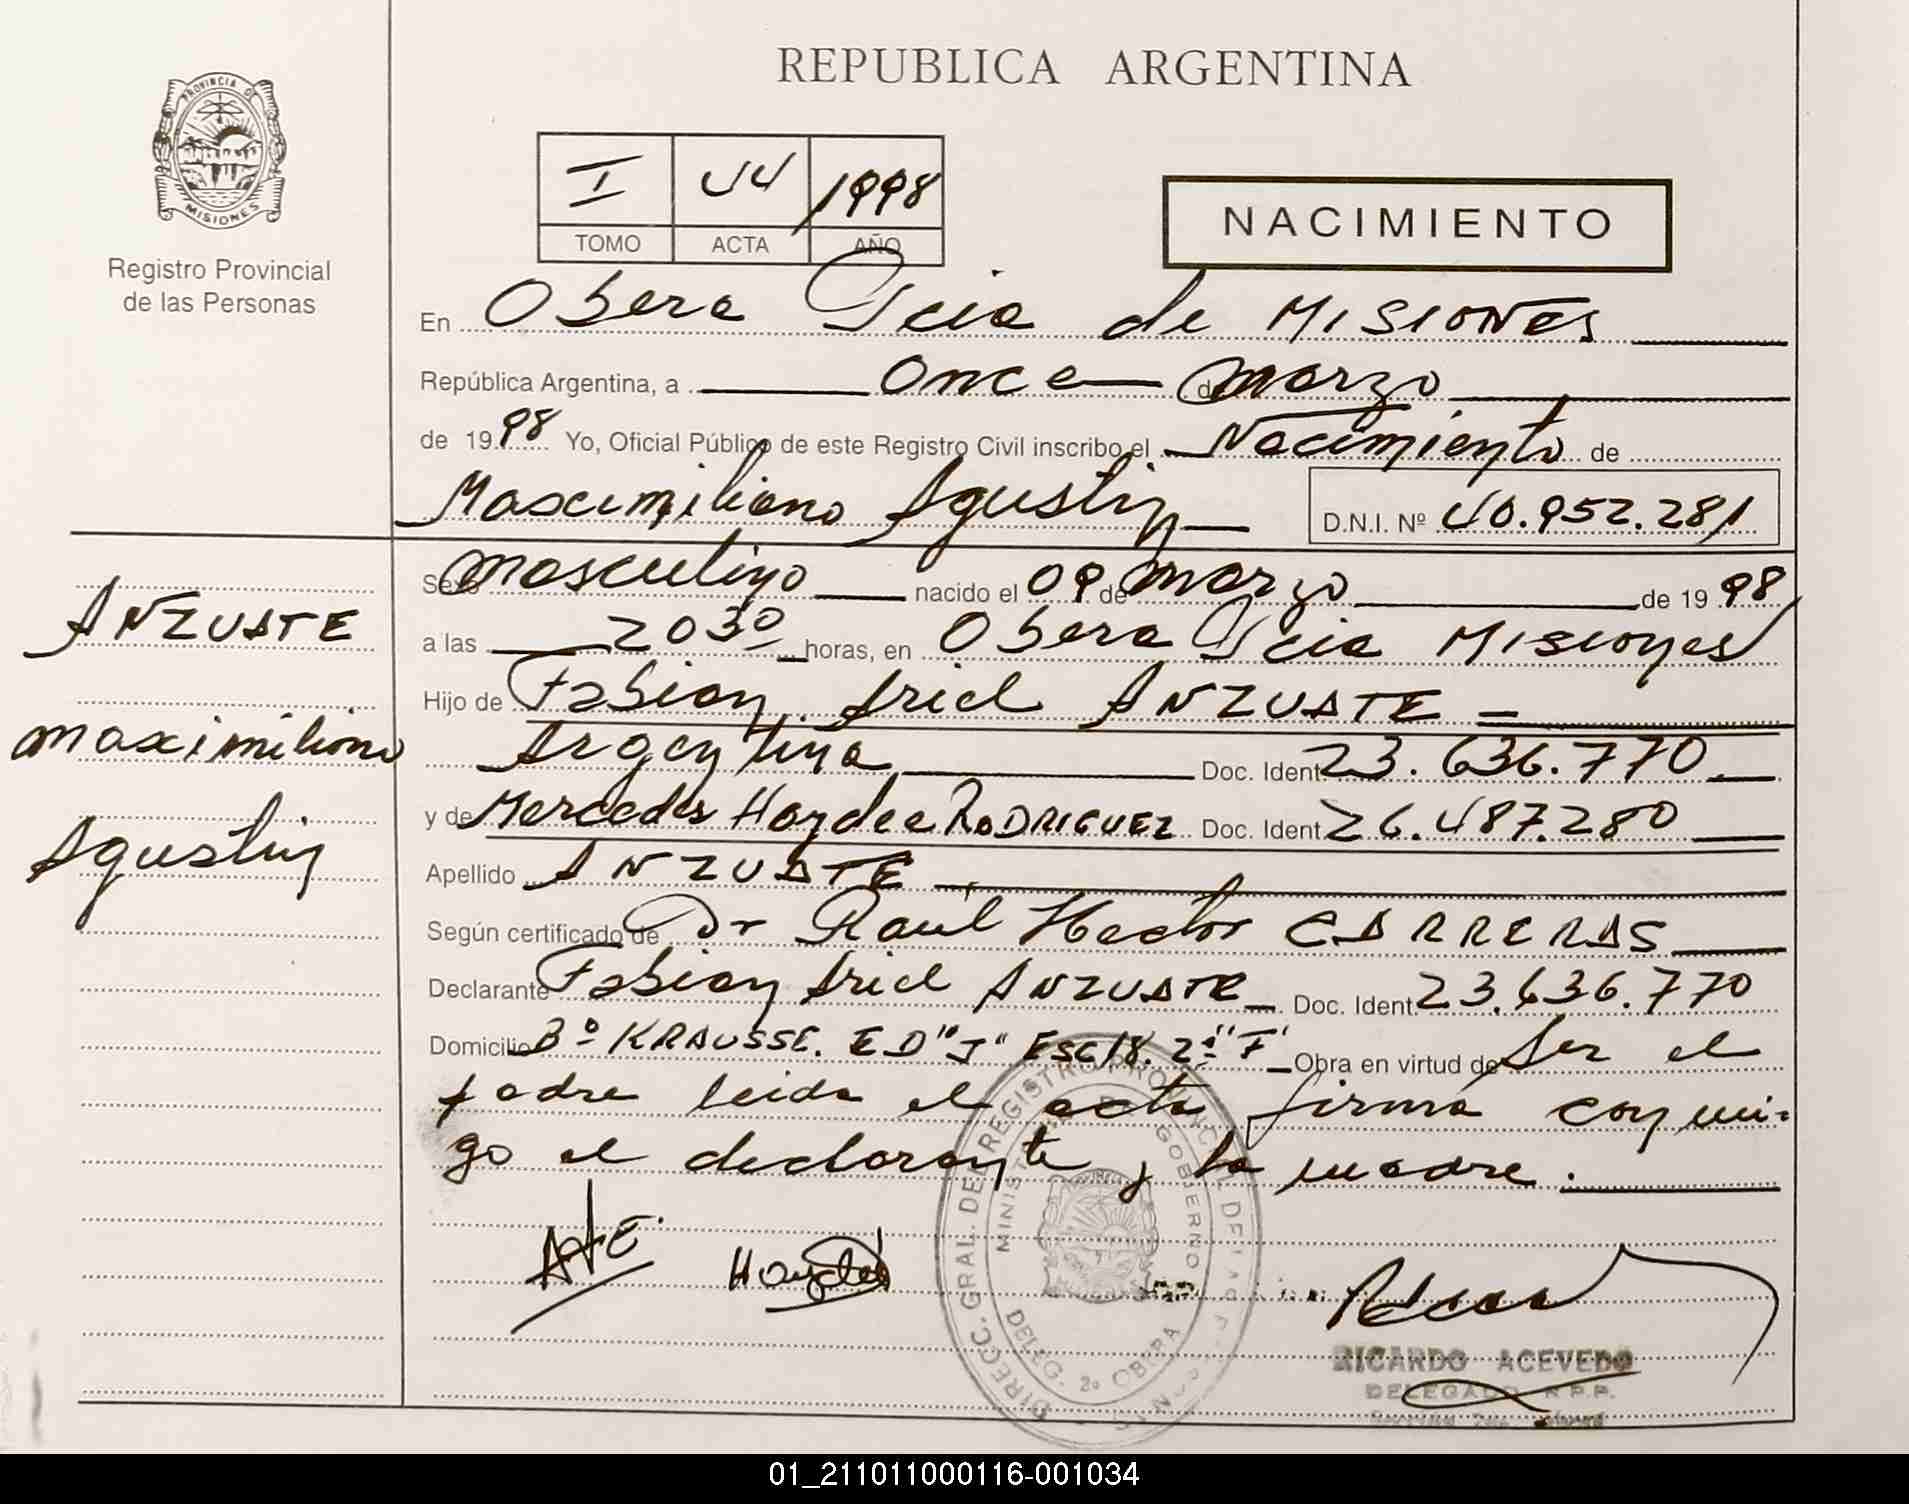 REPUBLICA ARGENTINA
PROVINCIA DE
MISIONES
Registro Provincial
de las Personas
I 44 1998
TOMO ACTA AÑO
NACIMIENTO
En Obera Pcia de MISIONES
República Argentina, a once de marzo
de 1998 Yo, Oficial Público de este Registro Civil inscribo el Nacimiento de
Maximiliano Agustin D.N.I. Nº 40.952.281
Sexo masculino nacido el 09 de marzo de 1998
a las 2030 horas, en Obera Pcia Misiones
Hijo de Fabian Ariel ANZUATE
Argentina Doc. Ident 23.636.770
y de Mercedes Haydee RODRIGUEZ Doc. Ident 26.487.280
Apellido ANZUATE
Según certificado de Dr Raul Hector CARRERAS
Declarante Fabian Ariel ANZUATE Doc. Ident. 23.636.770
Domicilio Bº KRAUSSE. ED "J" ESC 18. 2º "F" Obra en virtud de ser el
padre leida el acta firma conmi-
go el declarante y la madre.
ANZUATE
maximiliano
Agustin
Haydee
DIRECC. GRAL. DEL REGISTRO PROVINCIAL DE LAS PERSONAS
MINISTERIO DE GOBIERNO
DELEG. 2º OBERA
RICARDO ACEVEDO
DELEGADO R.P.P.
01_211011000116-001034